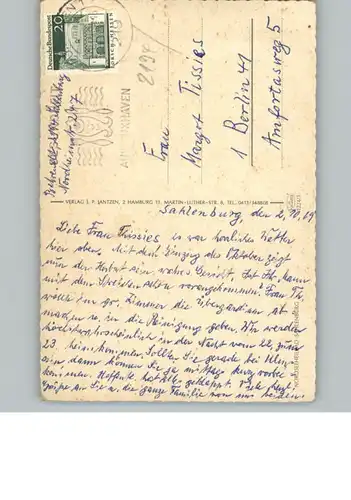 Deutsche Bundespost
20
2194
CUXHAVEN
Nordheimstr. 247
Frau
Margot Tissies
1 Berlin 41
Amfortasweg 5
VERLAG J. P. JANTZEN, 2 HAMBURG 13, MARTIN-LUTHER-STR. 8, TEL. 0411/348808
Sahlenburg, den 2. 10. 69
Liebe Frau Tissies es war herrliches Wetter
hier oben. Mit dem Einzug des Oktober zeigt
nun der Herbst ein wahres Gesicht. Hat Ihr Mann
mit dem Streichen schon vorangekommen? Frau Th.
wollte im gr. Zimmer die Übergardinen ab
machen u. in die Reinigung geben. Wir werden
höchstwahrscheinlich in der Nacht vom 22. zum
23. heimkommen. Sollten Sie gerade bei
sein dann können Sie ja mal kurz vorbei
kommen. Hoffentl. hat alles geklappt. Sehr herzl.
Grüße an Sie u. die ganze Familie von uns beiden.